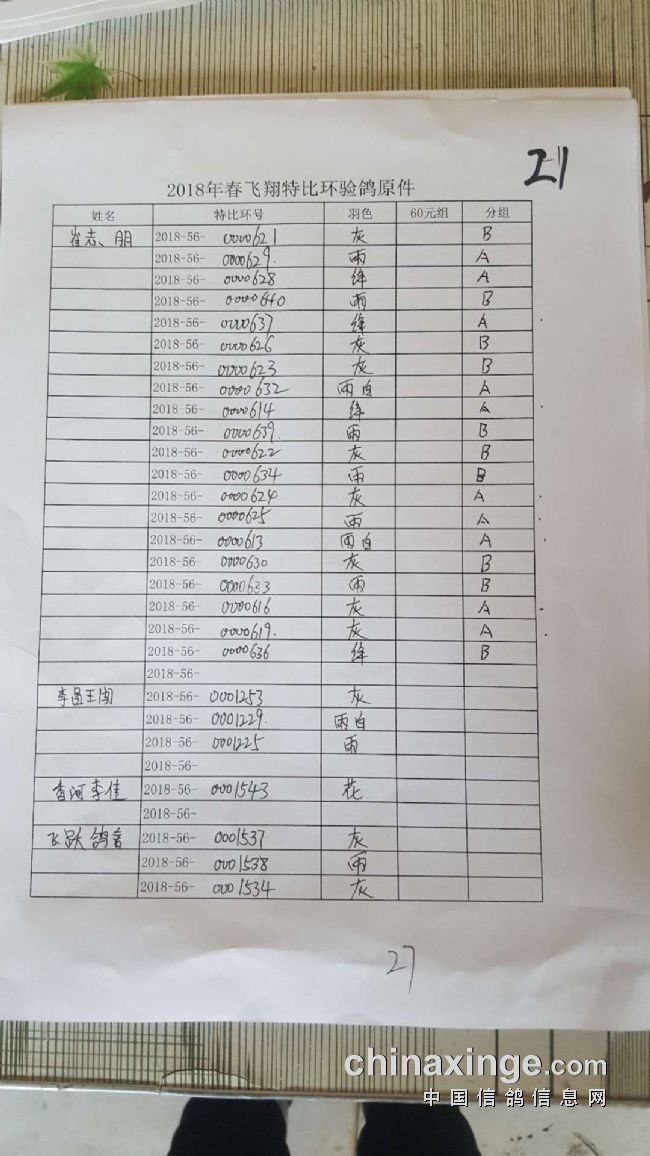 21
2018年春飞翔特比环验鸽原件
姓名 特比环号 羽色 60元组 分组
崔志朋 2018-56- 0000621 灰 B
2018-56- 0000629. 雨 A
2018-56- 0000628 绛 A
2018-56- 0000640 雨 B
2018-56- 0000637 绛 A
2018-56- 0000626 灰 B
2018-56- 0000623 灰 B
2018-56- 0000632 雨白 A
2018-56- 0000614 绛 A
2018-56- 0000639. 雨 B
2018-56- 0000622 灰 B
2018-56- 0000634 雨 B
2018-56- 0000624 灰 A
2018-56- 0000625 雨 A
2018-56- 0000613 雨白 A
2018-56- 0000630 灰 B
2018-56- 0000633 雨 B
2018-56- 0000616 灰 A
2018-56- 0000619. 灰 A
2018-56- 0000636 绛 B
2018-56-
2018-56- 0001253 灰
2018-56- 0001229. 雨白
2018-56- 0001225 雨
2018-56-
香河李佳 2018-56- 0001543 花
2018-56-
飞跃鸽舍 2018-56- 0001537 灰
2018-56- 0001538 雨
2018-56- 0001534 灰
27
chinaxinge.com
中国信鸽信息网